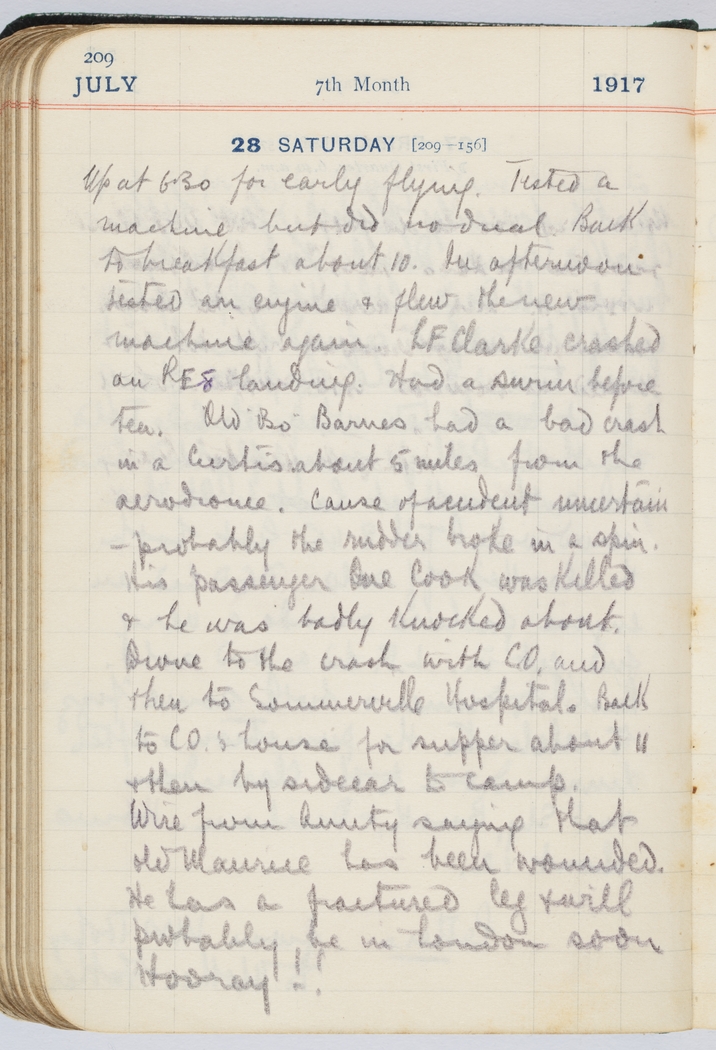 209
JULY 7th Month 1917
28 SATURDAY [209—156]
Up at 6.30 for early flying. Tested a
machine but did no dual Back
to breakfast about 10. In afternoon
tested an engine & flew the new
machine again. LF Clarke crashed
an RE8 landing. Had a swim before
tea. Old "Bo" Barnes had a bad crash
in a Curtis about 5 miles from the
aerodrome. Cause of accident uncertain
– probably the rudder broke in a spin.
His passenger One Cook was killed
& he was badly knocked about.
Drove to the crash with CO, and
then to Sommerville Hospital. Back
to CO.'s house for supper about 11
& then by sidecar to camp.
Wire from Aunty saying that
old Maurice has been wounded.
He has a fractured leg & will
probably be in London soon
Hooray!!